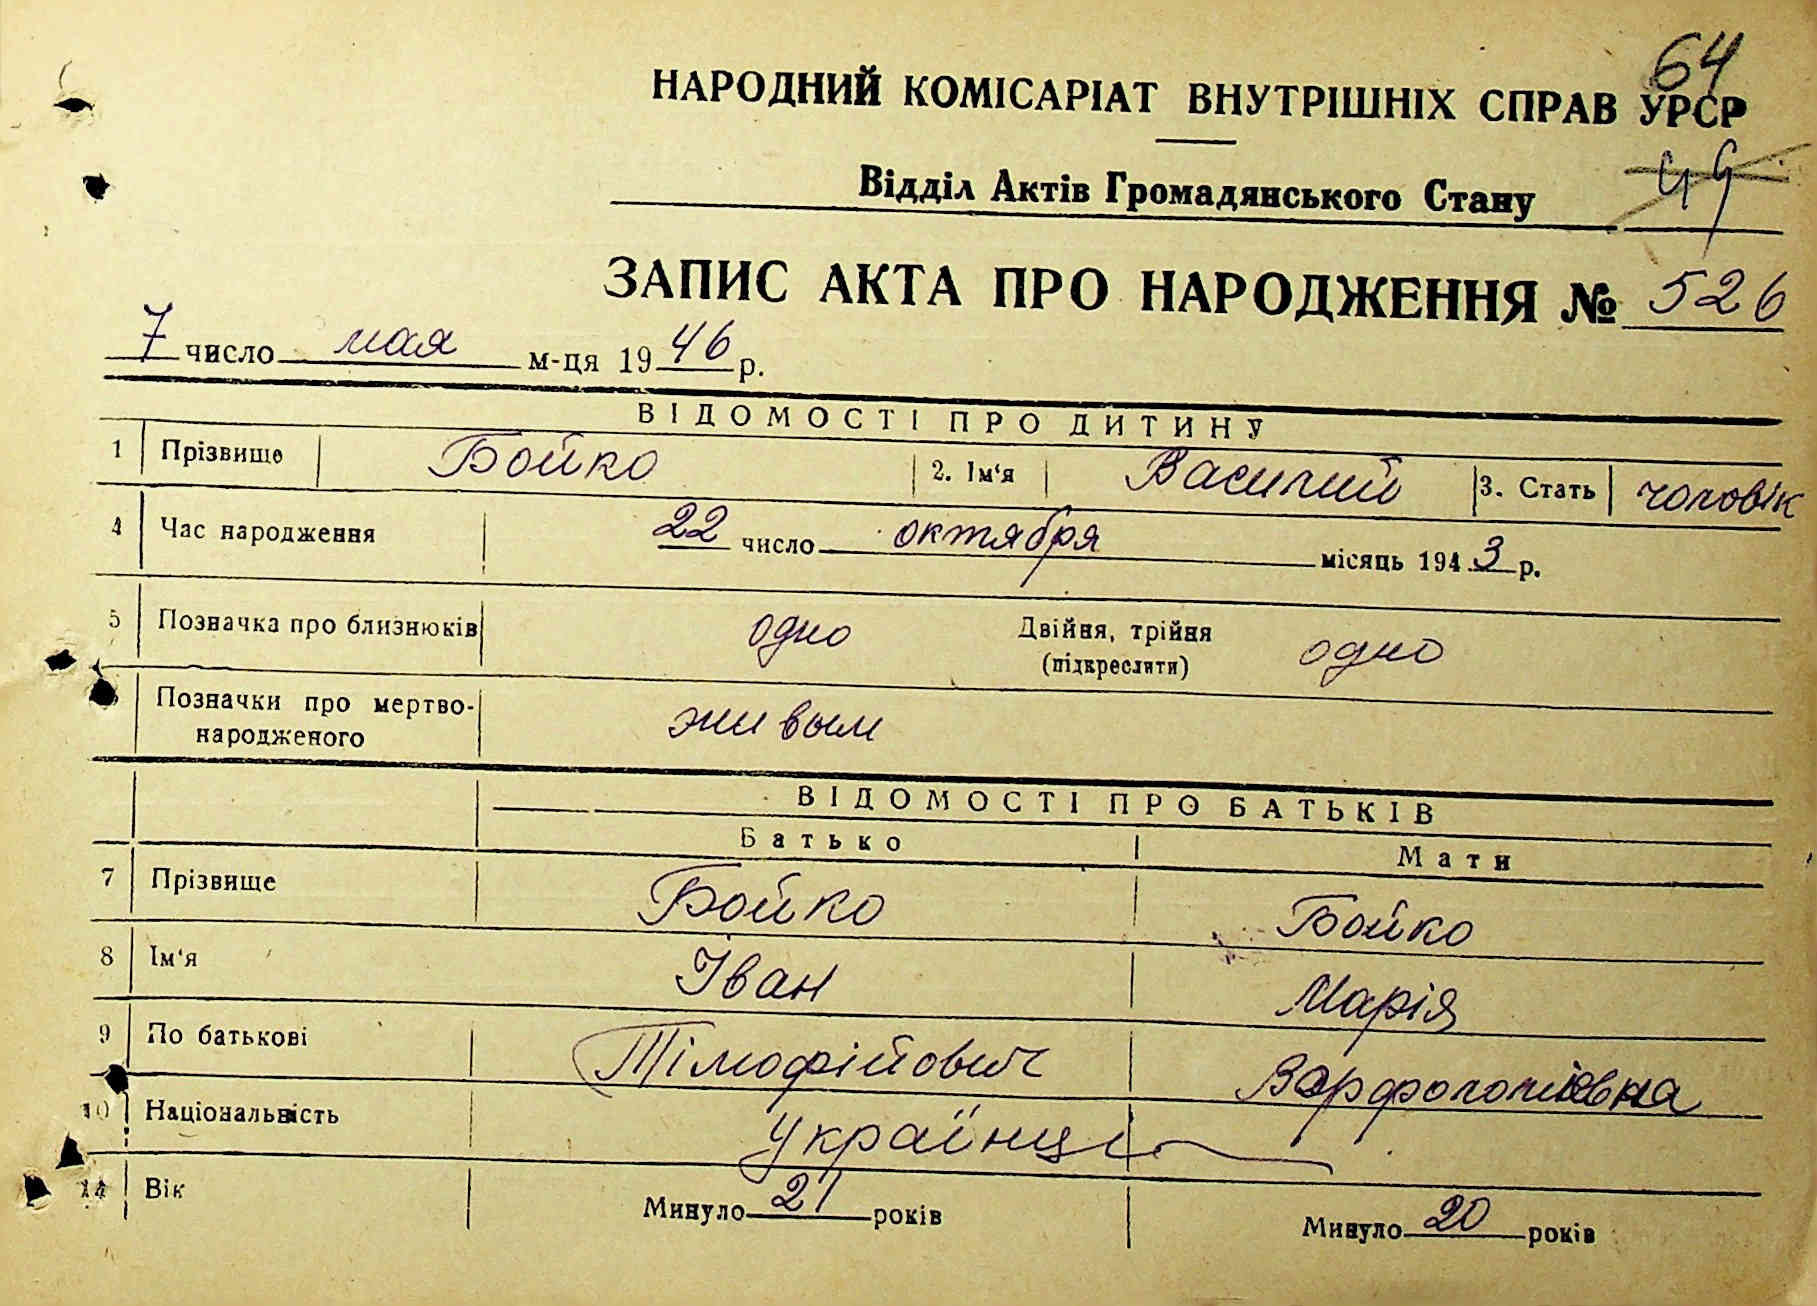 64
НАРОДНИЙ КОМІСАРІАТ ВНУТРІШНІХ СПРАВ УРСР
Відділ Актів Громадянського Стану
ЗАПИС АКТА ПРО НАРОДЖЕННЯ № 526
7 число мая м-ця 1946 р.
ВІДОМОСТІ ПРО ДИТИНУ
1 Прізвище Бойко 2. Ім'я Василий 3. Стать чоловік
4 Час народження 22 число октября місяць 1943 р.
5 Позначка про близнюків одно Двійня, трійня (підкреслити) одно
Позначки про мертво-
народженого живым
ВІДОМОСТІ ПРО БАТЬКІВ
Батько Мати
7 Прізвище Бойко Бойко
8 Ім'я Іван Марія
9 По батькові Тімофійович Варфоломіевна
10 Національність українці
11 Вік Минуло 21 років Минуло 20 років